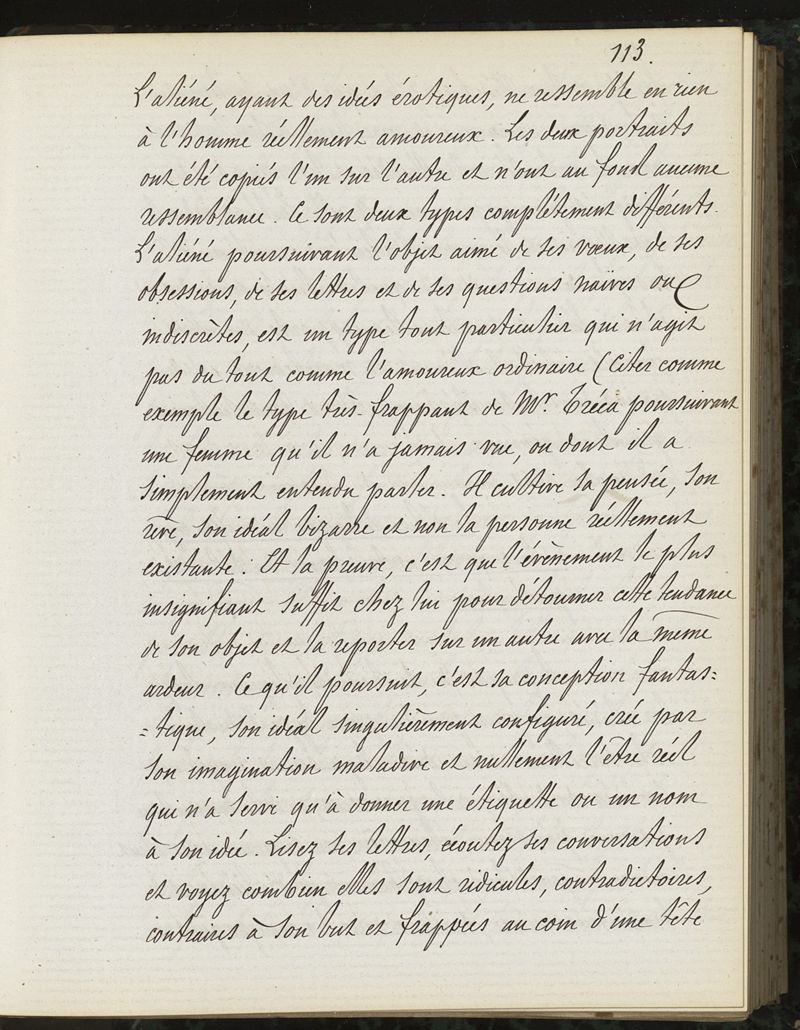 113.
L'aliéné, ayant des idées érotiques, ne ressemble en rien
à l'homme réellement amoureux. Les deux portraits
ont été copiés l'un sur l'autre et n'ont au fond aucune
ressemblance. Ce sont deux types complétement différents.
L'aliéné poursuivant l'objet aimé de ses vœux, de ses
obsessions, de ses lettres et de ses questions naïves ou
indiscrètes, est un type tout particulier qui n'agit
pas du tout comme l'amoureux ordinaire (Citer comme
exemple le type très-frappant de Mr. Tréca poursuivant
une femme qu'il n'a jamais vue, ou dont il a
simplement entendu parler. Il cultive sa pensée, son
rêve, son idéal bizarre et non la personne réellement
existante. Et la preuve, c'est que l'évènement le plus
insignifiant suffit chez lui pour détourner cette tendance
de son objet et la reporter sur un autre avec la même
ardeur. Ce qu'il poursuit, c'est sa conception fantas=
=tique, son idéal singulièrement configuré, créé par
son imagination maladive et nullement l'être réel
qui n'a servi qu'à donner une étiquette ou un nom
à son idée. Lisez ses lettres, écoutez ses conversations
et voyez combien elles sont ridicules, contradictoires,
contraires à son but et frappées au coin d'une tête